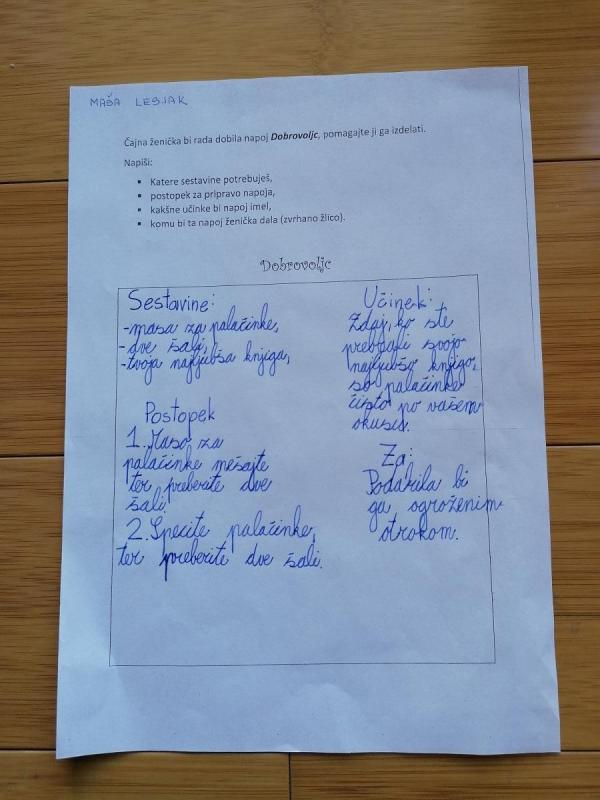 MAŠA LESJAK
Čajna ženička bi rada dobila napoj Dobrovoljc, pomagajte ji ga izdelati.
Napiši:
• Katere sestavine potrebuješ,
• postopek za pripravo napoja,
• kakšne učinke bi napoj imel,
• komu bi ta napoj ženička dala (zvrhano žlico).
Dobrovoljc
Sestavine:
-masa za palačinke,
-dve šali,
-tvoja najljubša knjiga,
Postopek
1. Maso za
palačinke mešajte
ter preberite dve
šali.
2. Specite palačinke,
ter preberite dve šali.
Učinek:
Zdaj, ko ste
prebrali svojo
najljubšo knjigo,
so palačinke
čisto po vašem
okusu.
Za:
Podarila bi
ga ogroženim
otrokom.